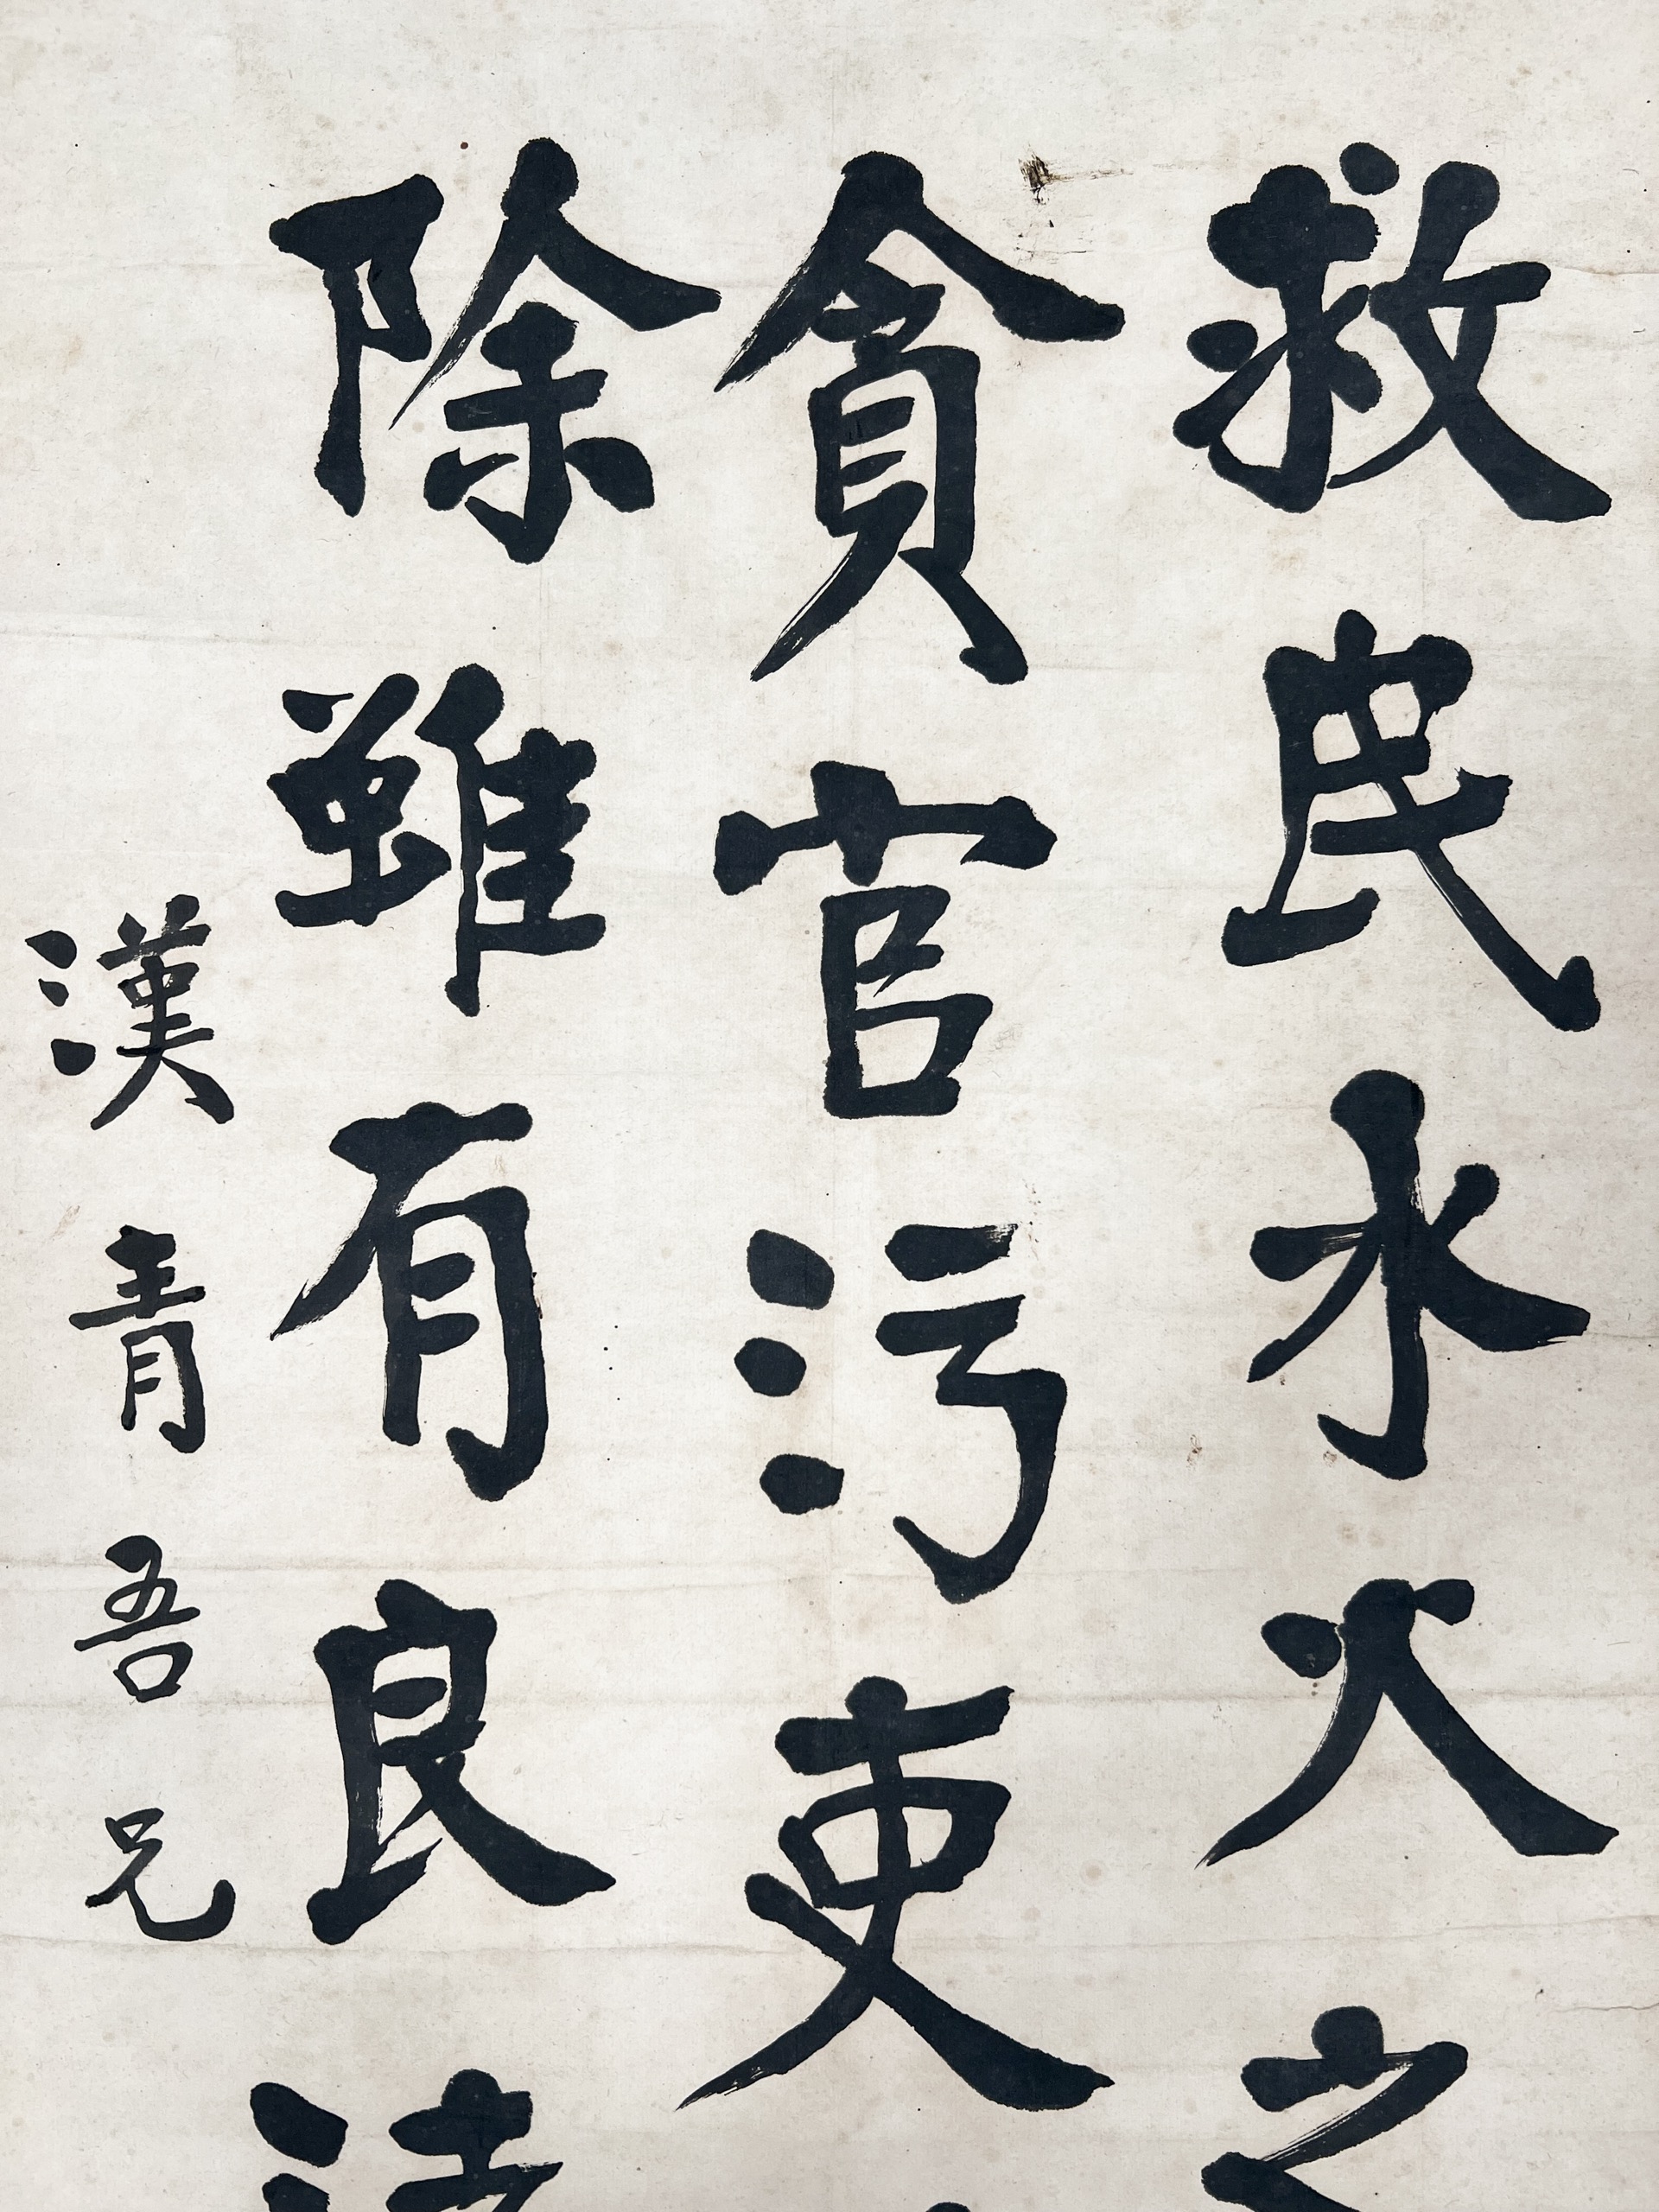 救民水火之
貪官污吏
除雖有良法
漢青吾兄